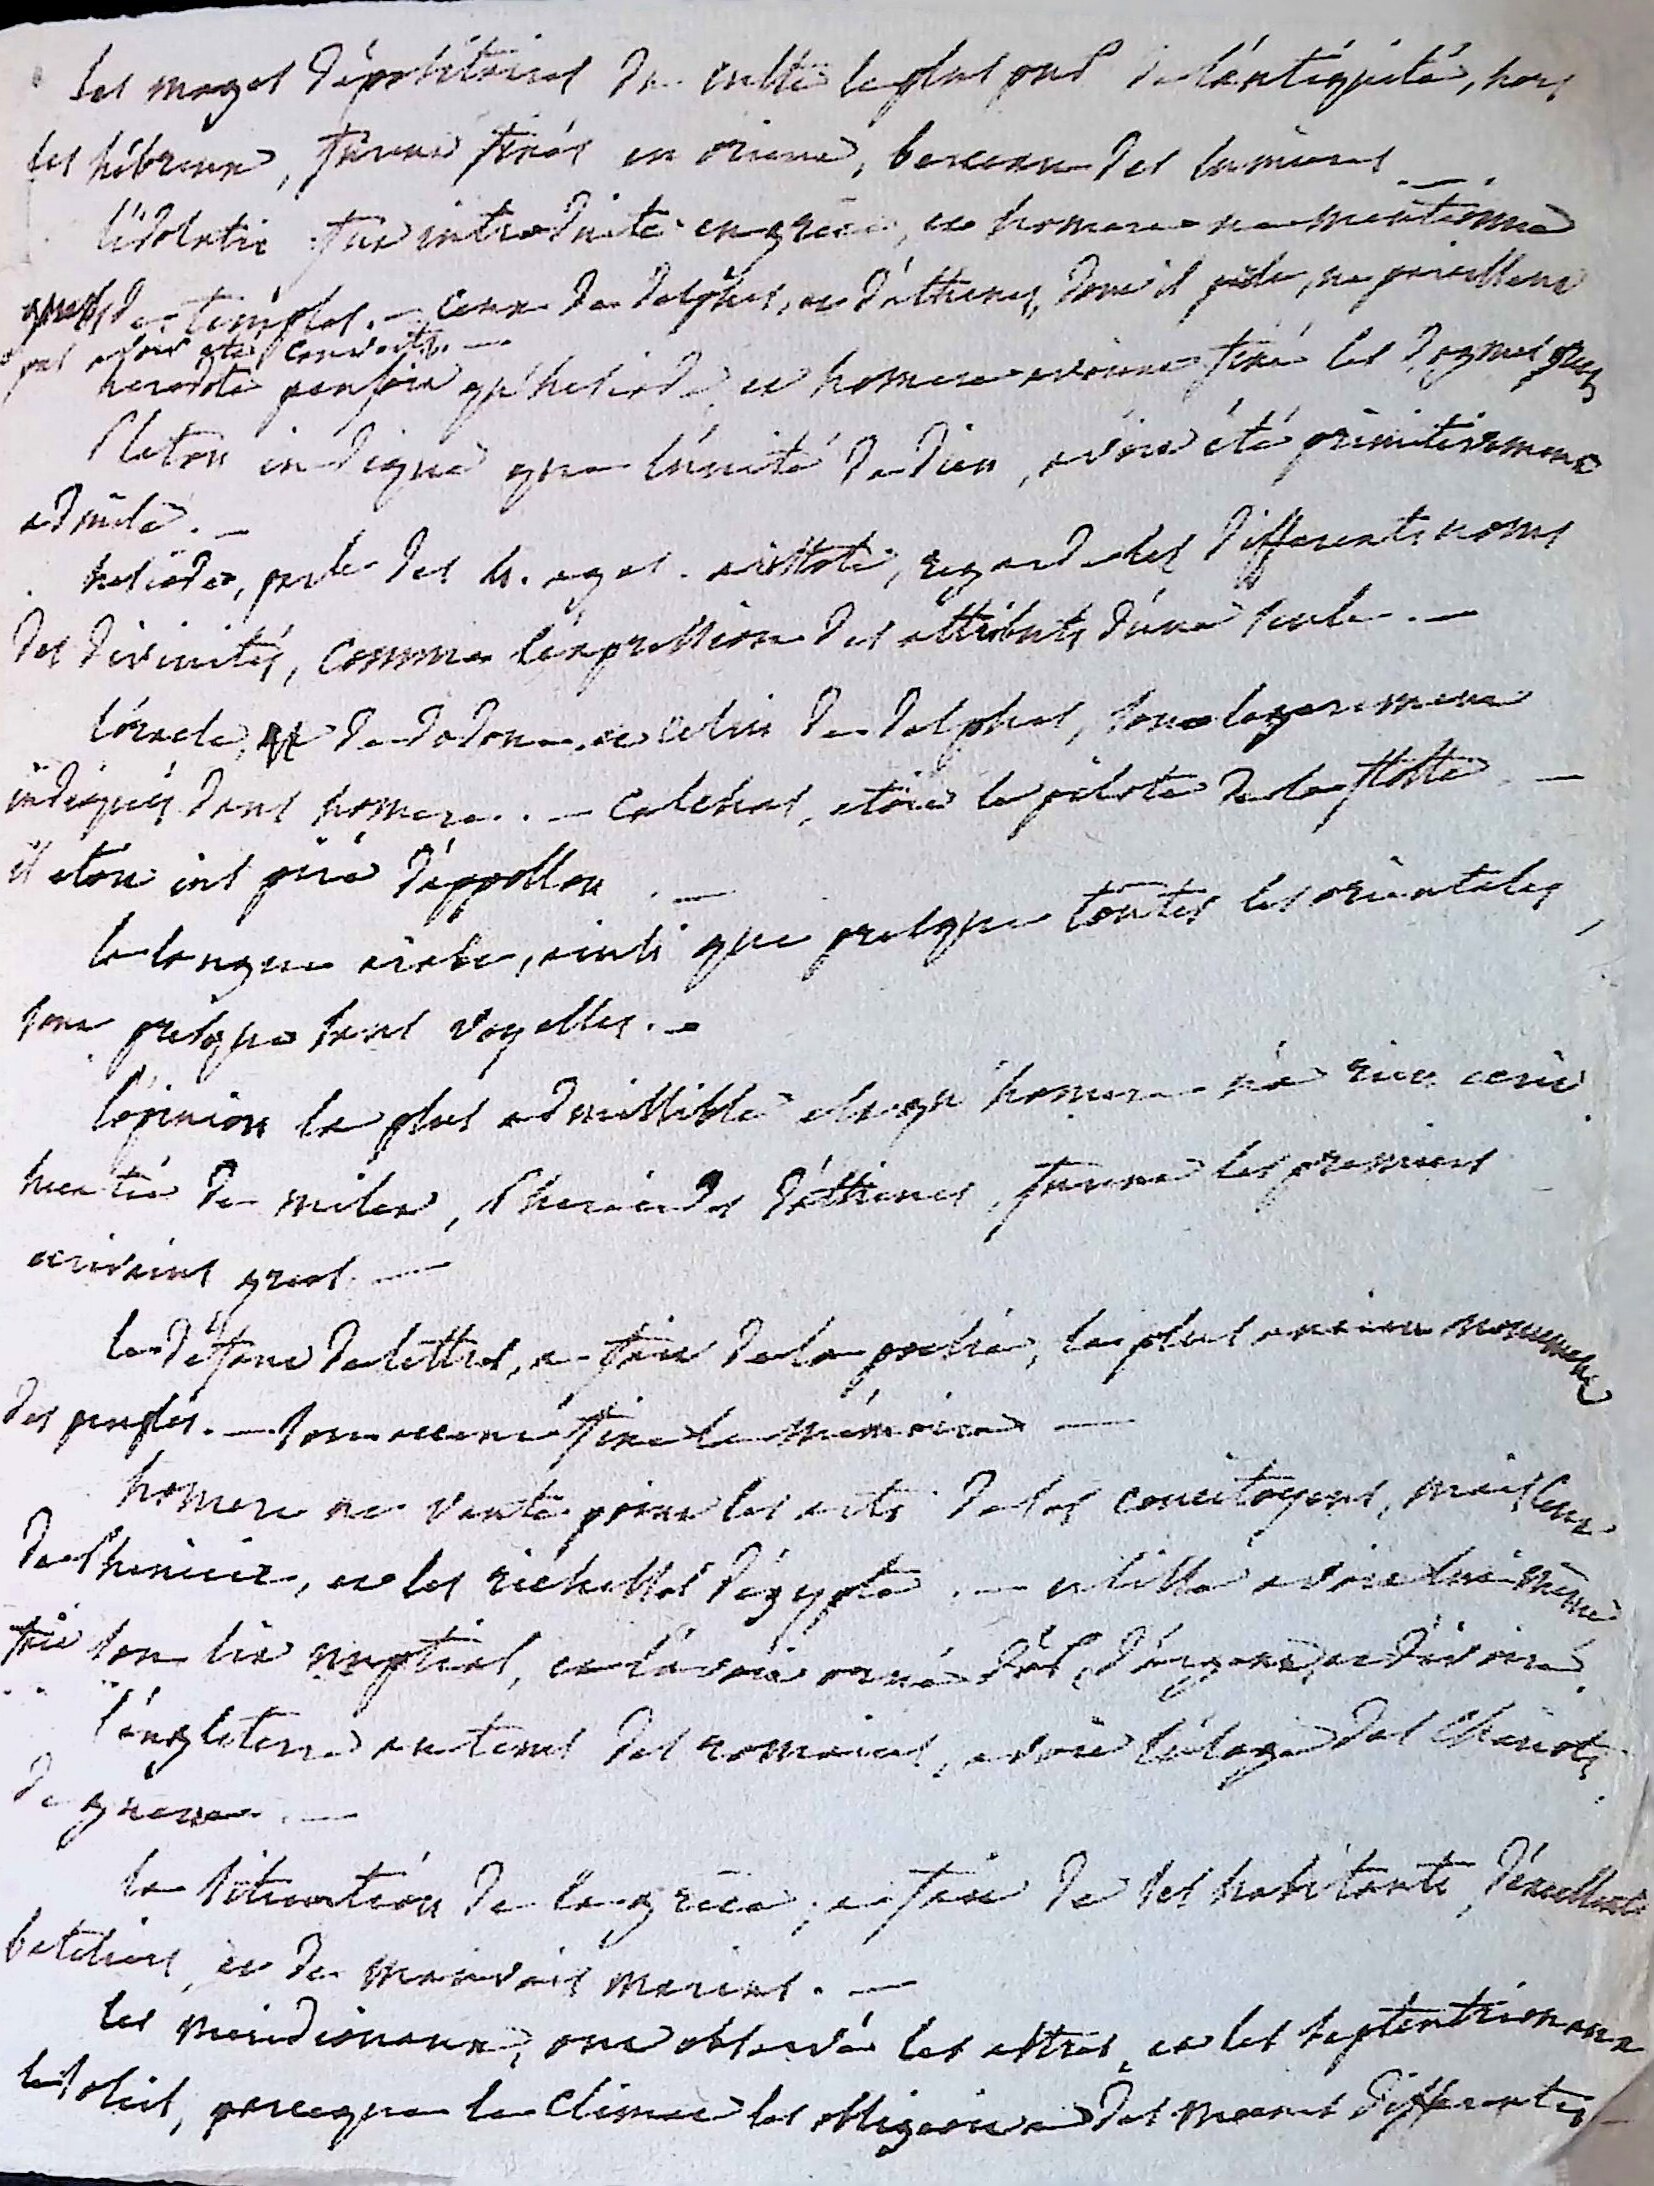 les mages dépositaires du culte le plus pur de l'antiquité, hors
les hébreux, furent fixés en orient, berceau des lumières. —
l'idolatrie fut introduite en grèce, et homere ne mentionne
que de temples. — ceux de delphes, et d'athenes, dont il parle, ne paraissent
pas avoir été construits. —
herodote pensoit qu'hesiode, et homere avoient fixé les dogmes grecs
Platon indique que l'unité de dieu, avoit été primitivement
admise. —
hesiode, parle des 4. ages. aristote, regarde les differents noms
des divinités, comme l'expression des attributs d'une seule. —
l'oracle, de dodone, et celui de delphes, sont legerement
indiqués dans homere. — calchas, étoit le pilote de la flotte. —
il etoit inspiré d'appollon. —
la langue arabe, ainsi que presque toutes les orientales,
sont presque sans voyelles. —
l'opinion la plus admissible est qu'homere n'a rien écrit.
hecatée de milet, Pherecides d'athenes, furent les premiers
ecrivains grecs. —
le défaut de lettres, a fait de la poesie, le plus ancien monument
des peuples. — son accent fixe la mémoire. —
homere ne vante point les arts de ses concitoyens, mais ceux
de Phenicie, et les richesses d'égypte. — ulisse avoit lui même
fait son lit nuptial, et l'avoit orné d'or, d'argent, et d'ivoire.
l'angleterre au tems des romains, avoit l'usage des chariots
de guerre. —
la situation de la grèce, a fait de ses habitants, d'excellents
bateliers, et de mauvais marins. —
les meridionaux, ont observé les astres, et les septentrionaux
le soleil, parceque le climat les obligeoit a des moeurs differentes —